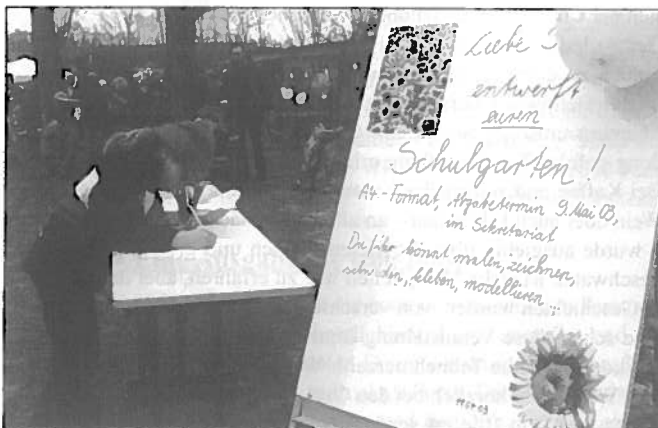 Liebe
entwerft
euren
Schulgarten!
A4-Format, Abgabetermin 9. Mai 03,
im Sekretariat
Dafür könnt malen, zeichnen,
kleben, modellieren...